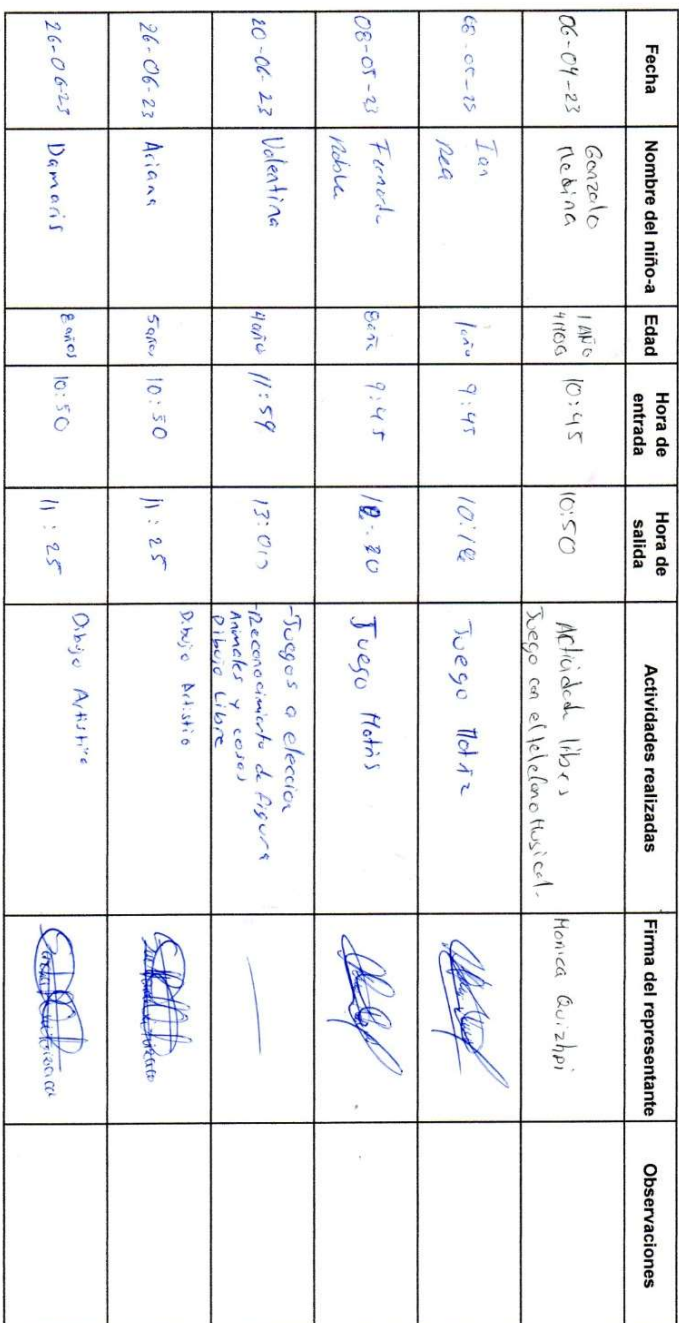 Fecha Nombre del niño-a Edad Hora de entrada Hora de salida Actividades realizadas Firma del representante Observaciones
06-04-23 Gonzalo Medina 1 AÑO 4 10:45 10:50 Actividad libres Juego con el telefono Musical. Monica Quizhpi
Ian 1 año 9:45 Juego Motriz
08-05-23 9:45 Juego Motris
20-06-23 Valentina 4 año 11:59 13:00 -Juegos a eleccion -Reconocimiento de figura Animales y cosas Dibujo Libre
26-06-23 Ariana 5 años 10:50 11:25 Dibujo Artistio
26-06-23 Damaris 8 años 10:50 11:25 Dibujo Artistico